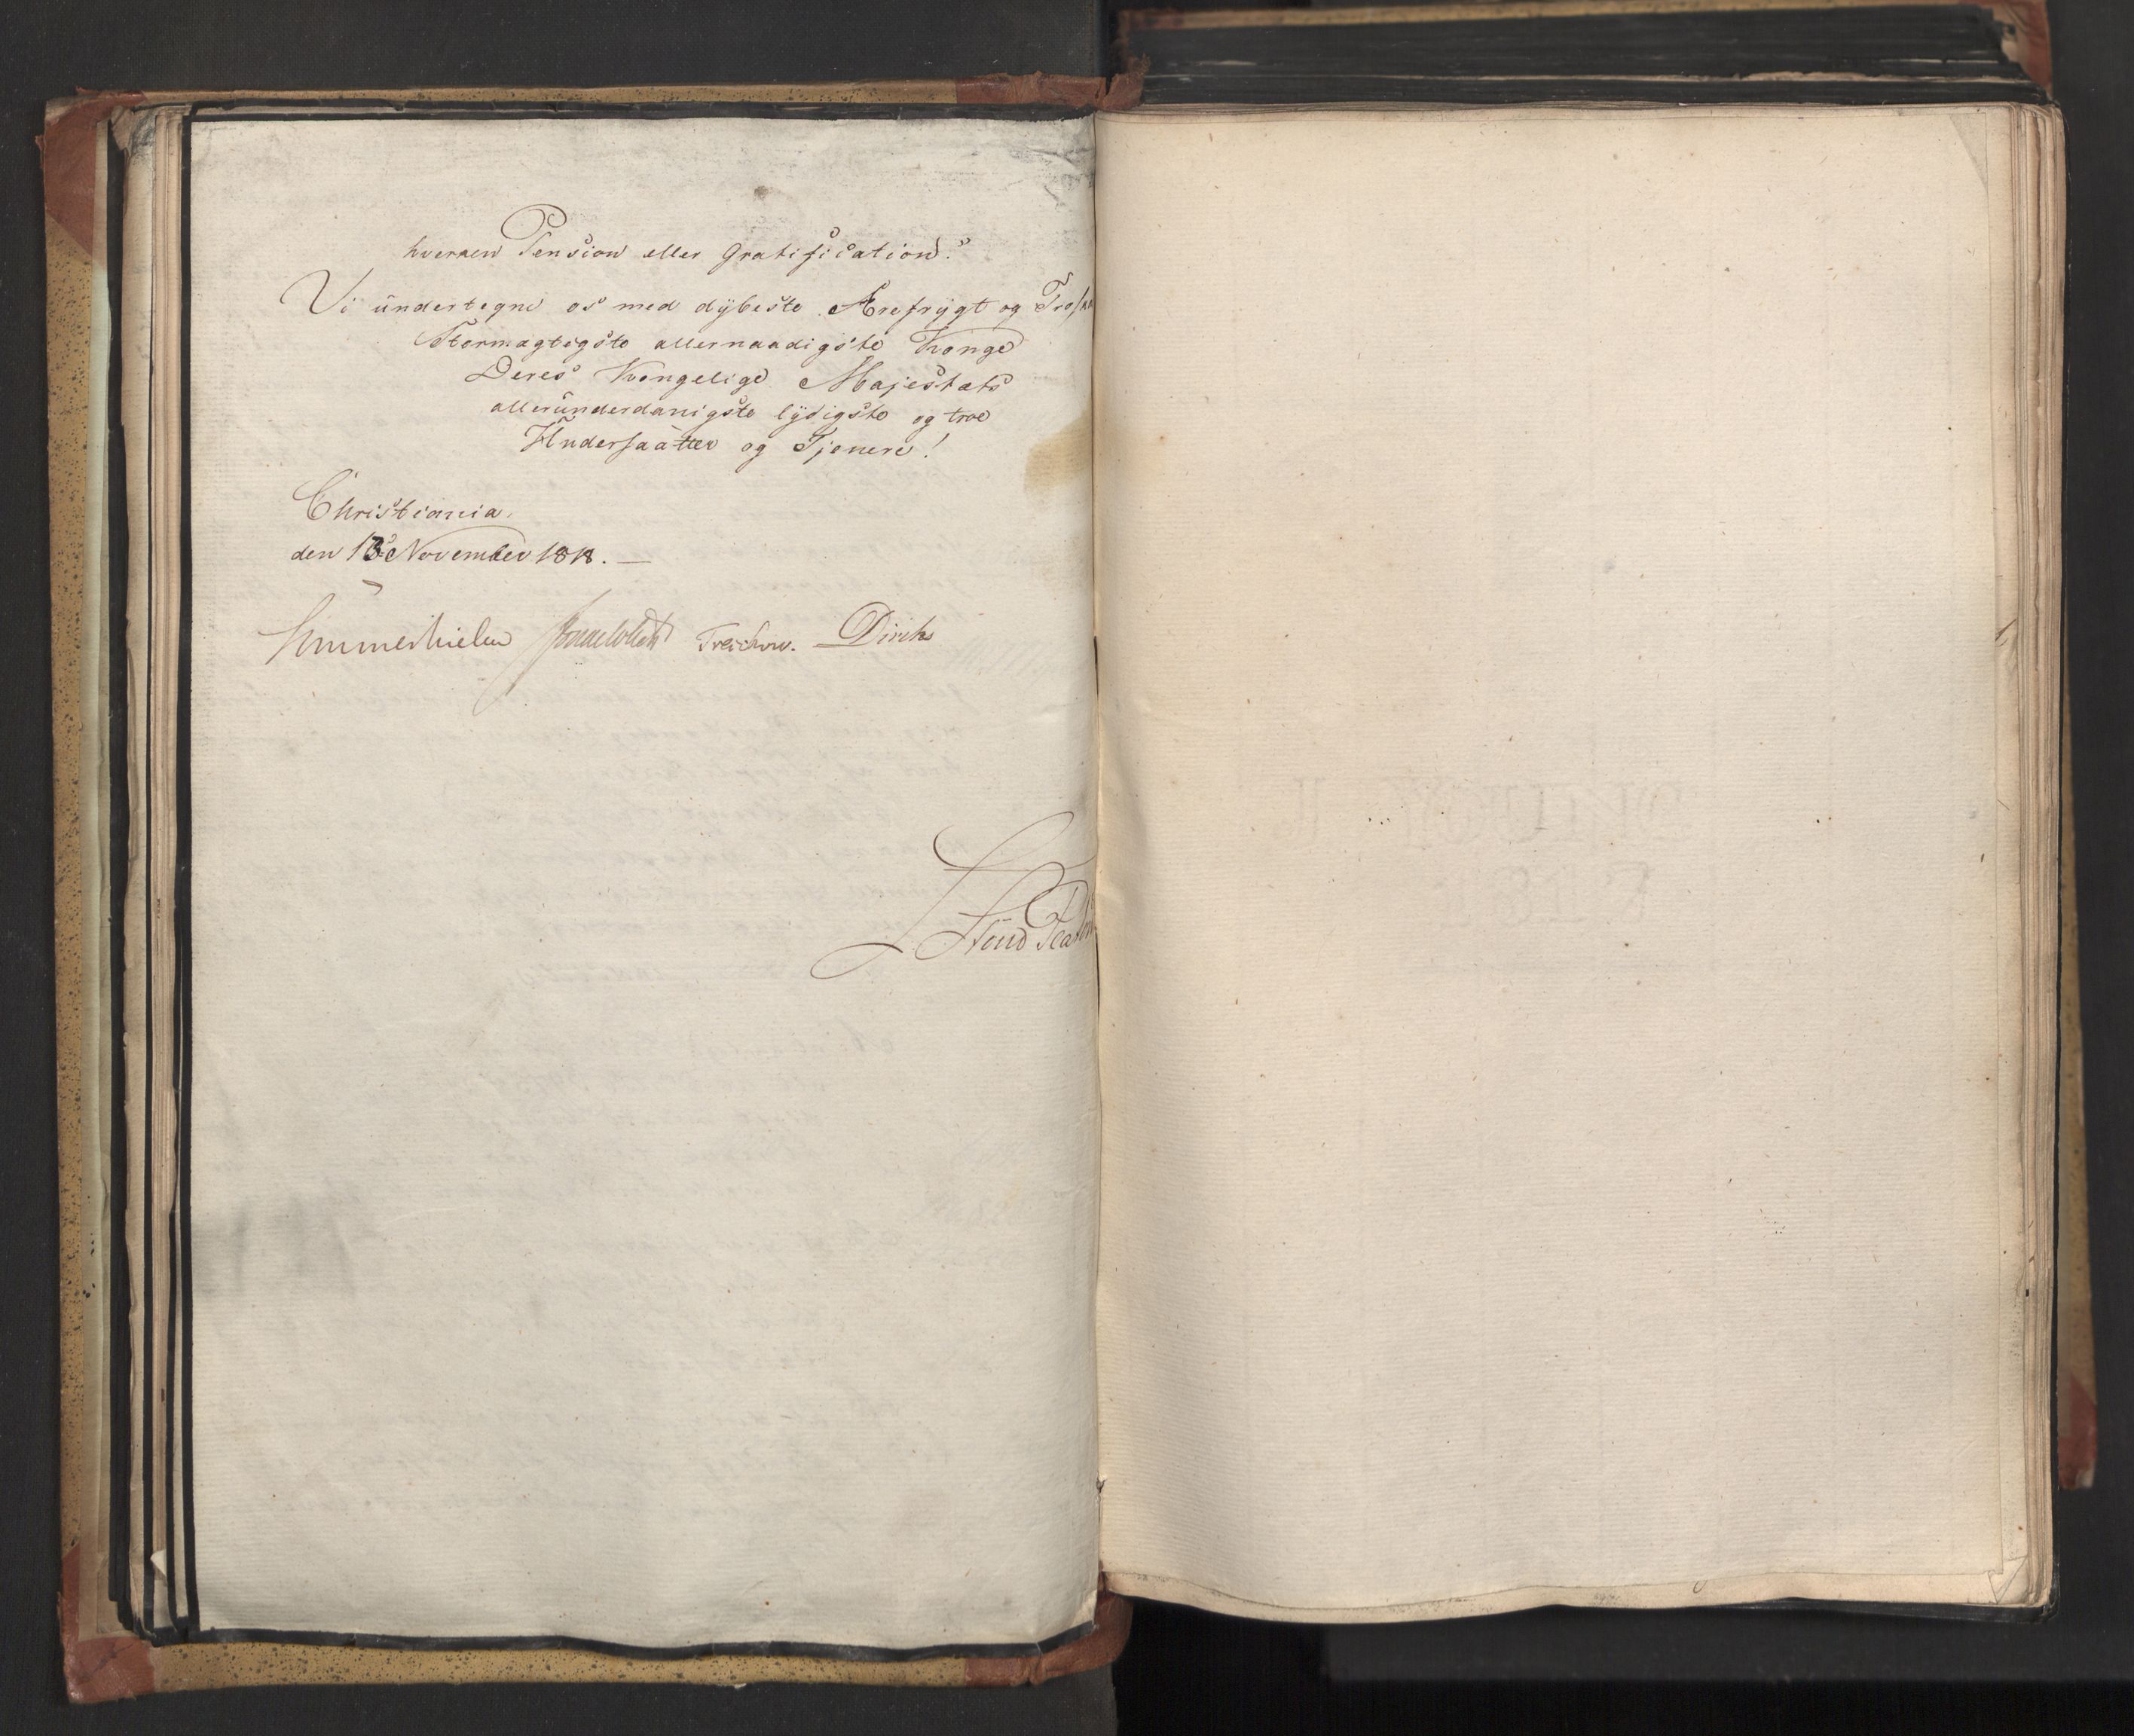 hverken Pension eller Gratification.
Vi undertegne os med dÿbeste Ærefrÿgt og Trosk
Stormægtigste allernaadigste Konge
Deres Kongelige Majestæts
allerunderdanigste lÿdigste og troe
Undersaatter og Tjenere!
Christiania
den 13 November 1818. —
Sommerhielm Treschow. Diriks